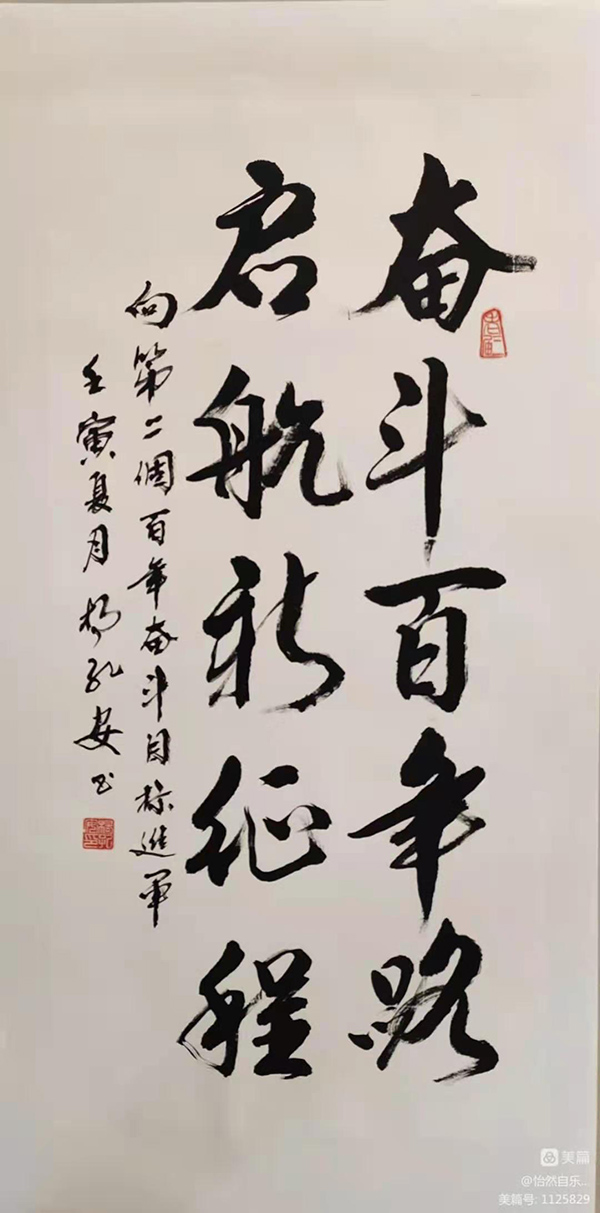 奋斗百年路
启航新征程
向第二個百年奋斗目标進军
壬寅夏月杨孔安书
美篇
@怡然自乐..
美篇号: 1125829